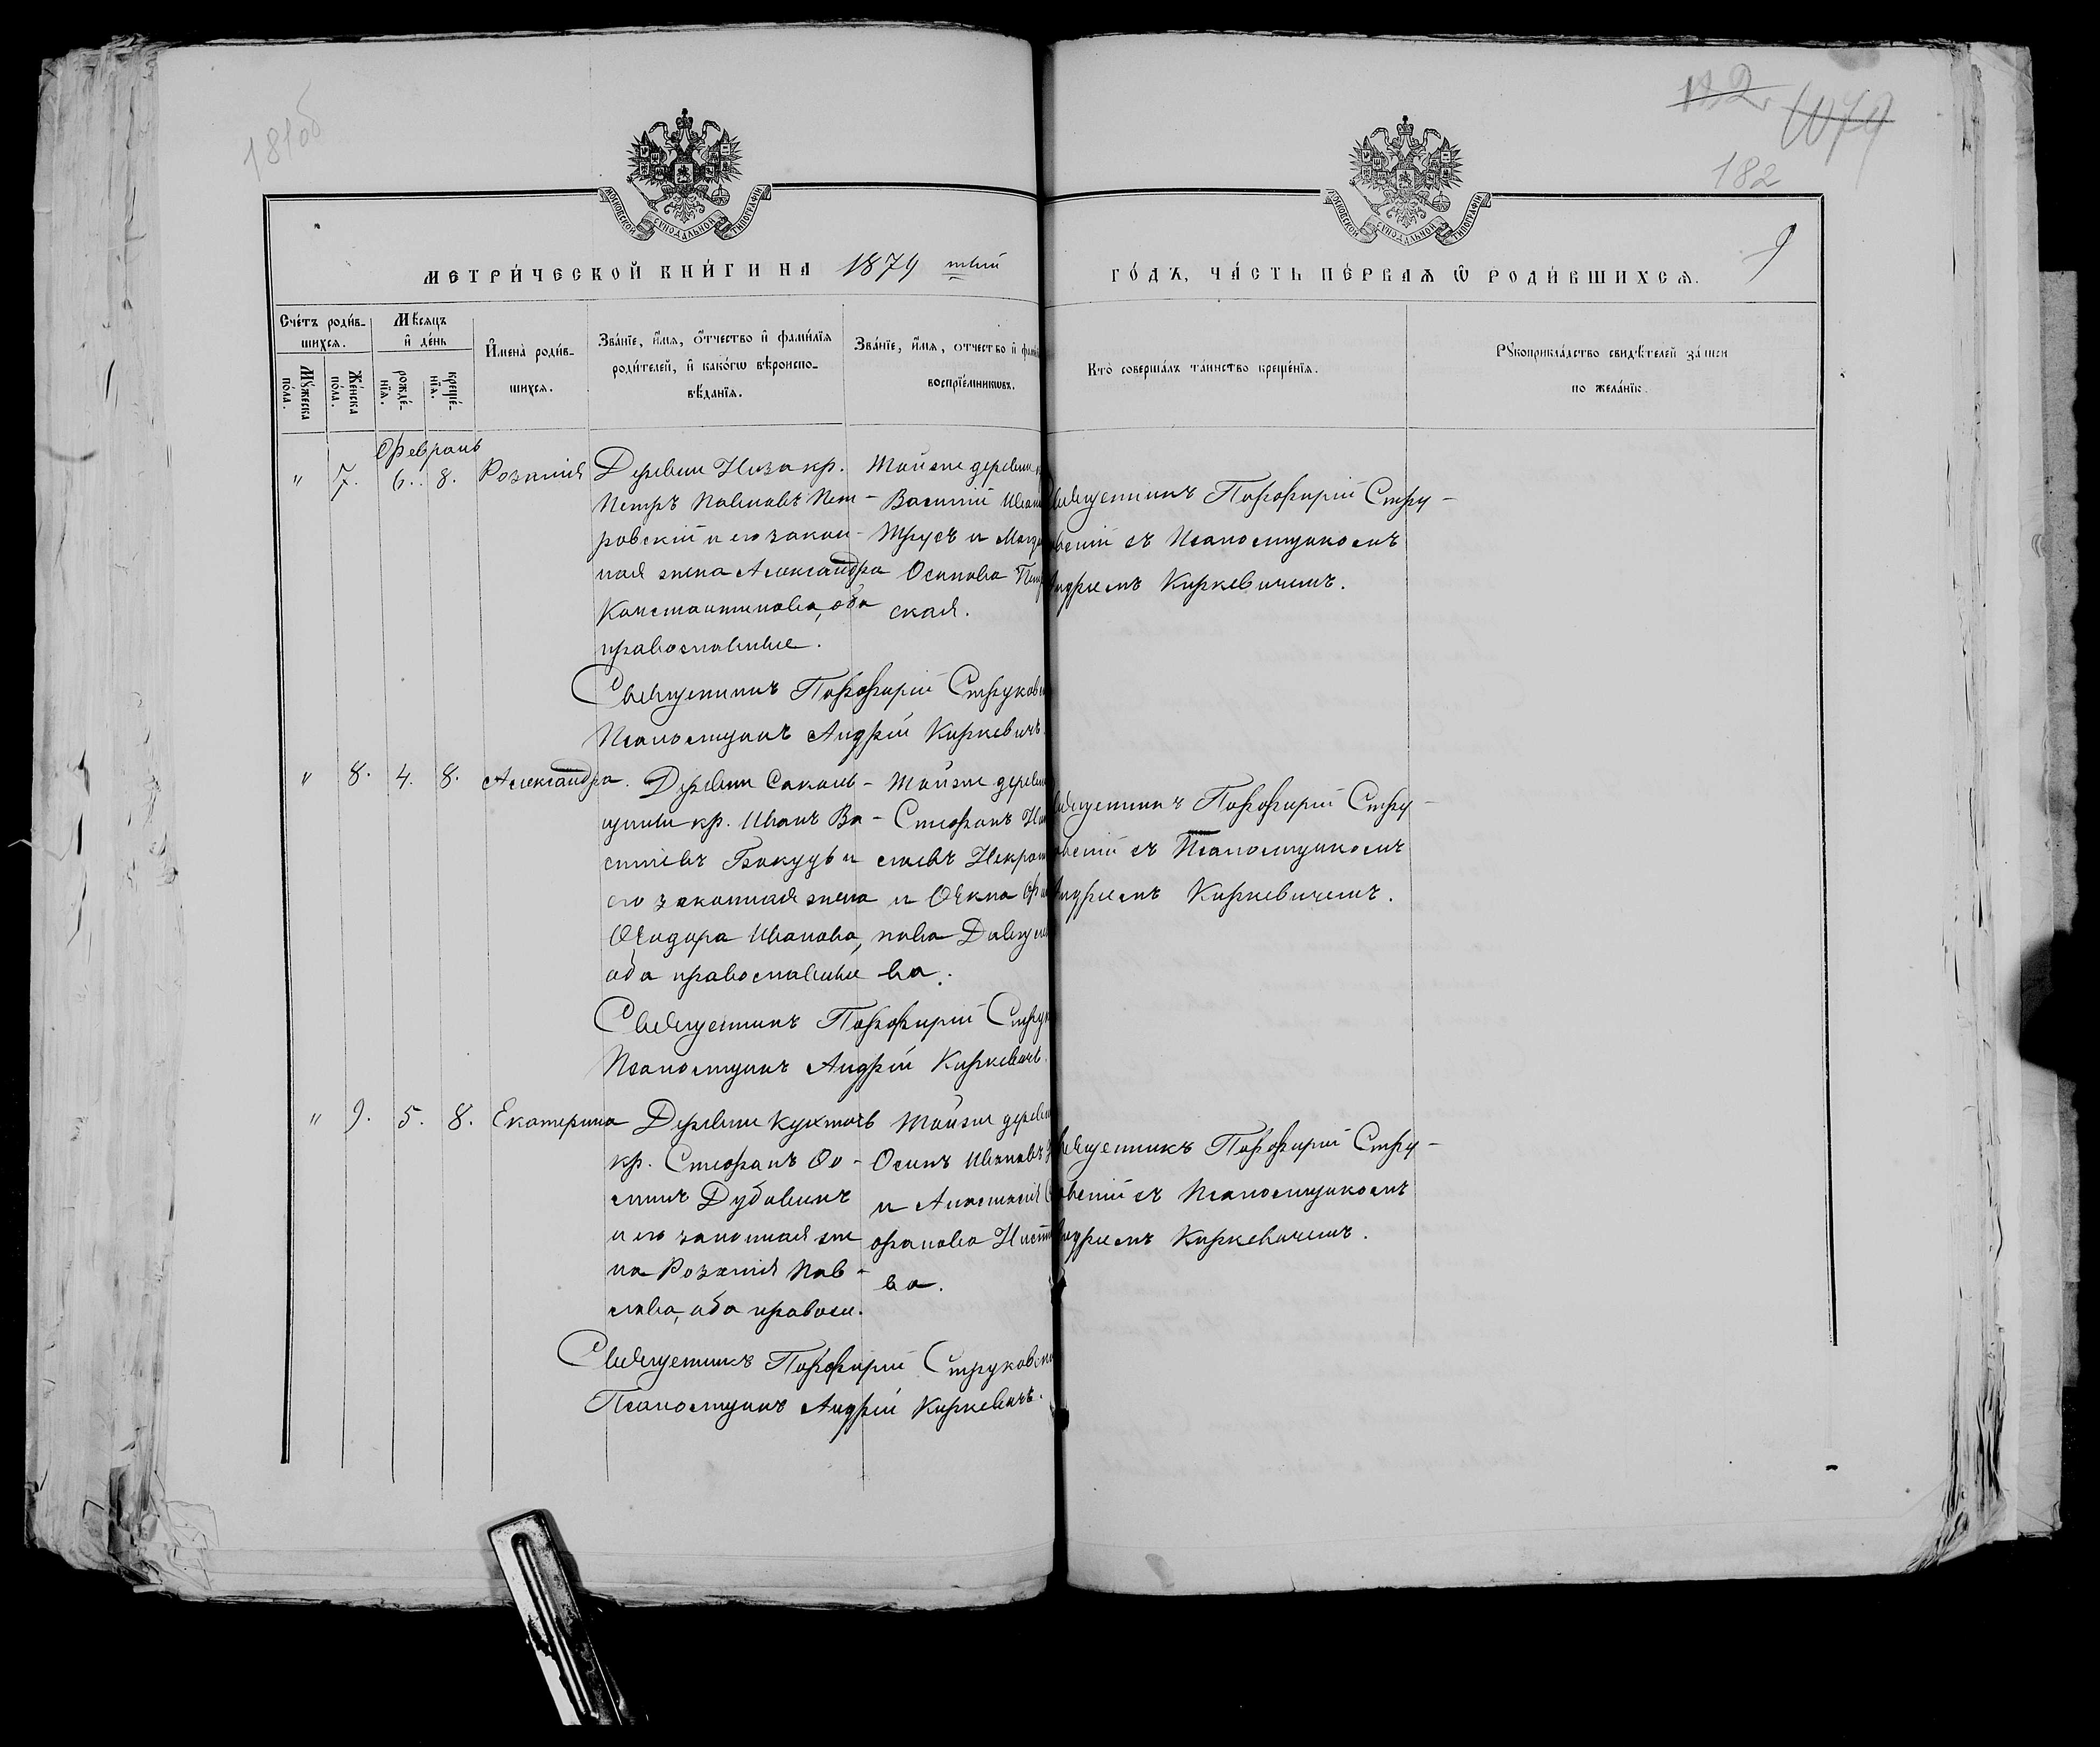 181об
182
1079
182
МОСКОВСКОЙ СУНОДАЛЬНОЙ ТИПОГРАФІИ
МОСКОВСКОЙ СУНОДАЛЬНОЙ ТИПОГРАФІИ
МЕТРИ́ЧЕСКОЙ КНИ́ГИ НА 1879 тый
ГО́ДЪ, ЧА́СТЬ ПЕ́РВАѦ Ѿ РОДИ́ВШИХСѦ. 9
Сче́тъ роди́в-
шихсѧ.
Мꙋ́жеска по́ла.
Же́нска по́ла.
Мѣ́сяцъ и҆ де́нь
рожде́-
нїѧ.
креще́-
нїѧ.
И҆мена̀ роди́в-
шихсѧ.
Зва́нїе, и҆́мѧ, ѻ҆́тчество и҆ фами́лїѧ
роди́телей, и҆ како́гѡ вѣроиспо-
вѣ́данїѧ.
Зва́нїе, и҆́мѧ, ѻ҆́тчество и҆
воспрїе́мникѡвъ.
Кто̀ соверша́лъ та́инство креще́нїѧ.
Рꙋкоприкла́дство свидѣ́телей за́писи
по жела́нїю.
Февраль
" 7. 6. 8. Розалія
Деревни Низа кр.
Петръ Павловъ Пет-
ровскій и его закон-
ная жена Александра
Константинова, оба
православные.
Тойже деревни
Василій
Трусъ и
Осипова
ская.
Священникъ Порфирій Стру-
ковскій съ Псаломщикомъ
Андреемъ Киркевичемъ.
Священникъ Порфирій
Псаломщикъ Андрей Киркевичъ.
" 8. 4. 8. Александра.
Деревни Соколь-
щины кр. Иванъ Ва-
сильевъ Бакудъ и
его законная жена
Ѳеодора Иванова,
оба православные
Тойже деревни
Стефанъ
и Ѳекла
нова
ва.
Священникъ Порфирій Стру-
ковскій съ Псаломщикомъ
Андреемъ Киркевичемъ.
Священникъ Порфирій
Псаломщикъ Андрей Киркевичъ.
" 9. 5. 8. Екатерина
Деревни
кр. Стефанъ Ос-
Дубовикъ
и его законная же
на Розалія Пав-
лова, оба правосл.
Тойже деревни
Осипъ Ивановъ
и Анастасія
фанова
ва.
Священникъ Порфирій Стру-
ковскій съ Псаломщикомъ
Андреемъ Киркевичемъ.
Священникъ Порфирій
Псаломщикъ Андрей Киркевичъ.